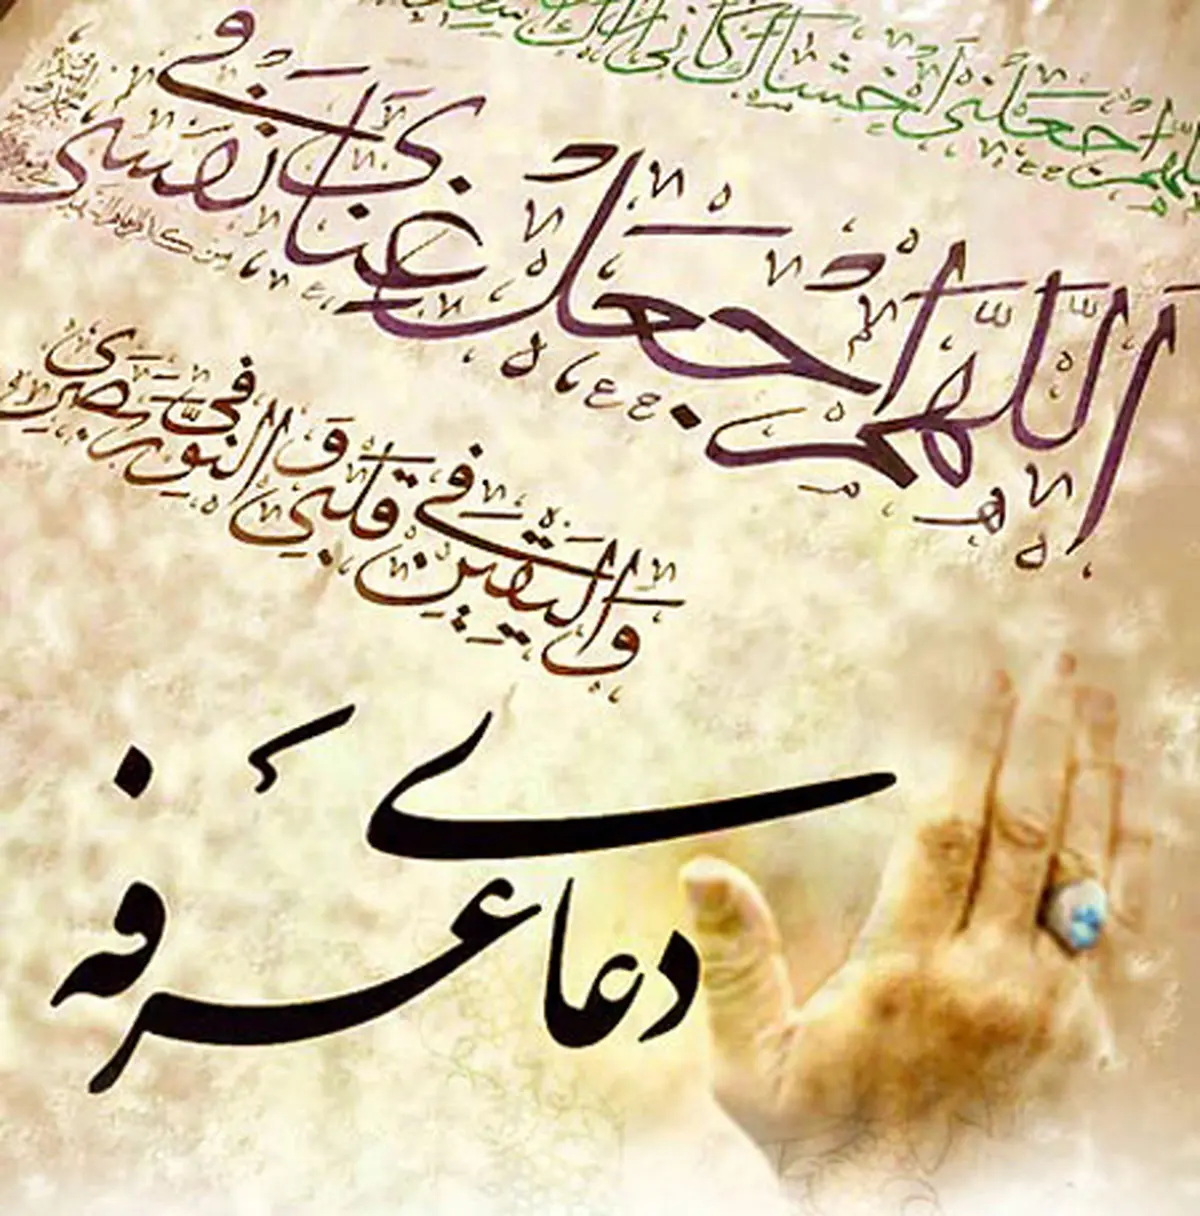 اللهم اجعلني أخشاك كأني أراك
اللَّهُمَّ اجْعَلْ غِنَايَ فِي نَفْسِي
وَالْيَقِينَ فِي قَلْبِي وَ النُّورَ فِي بَصَرِي
دعای عرفه